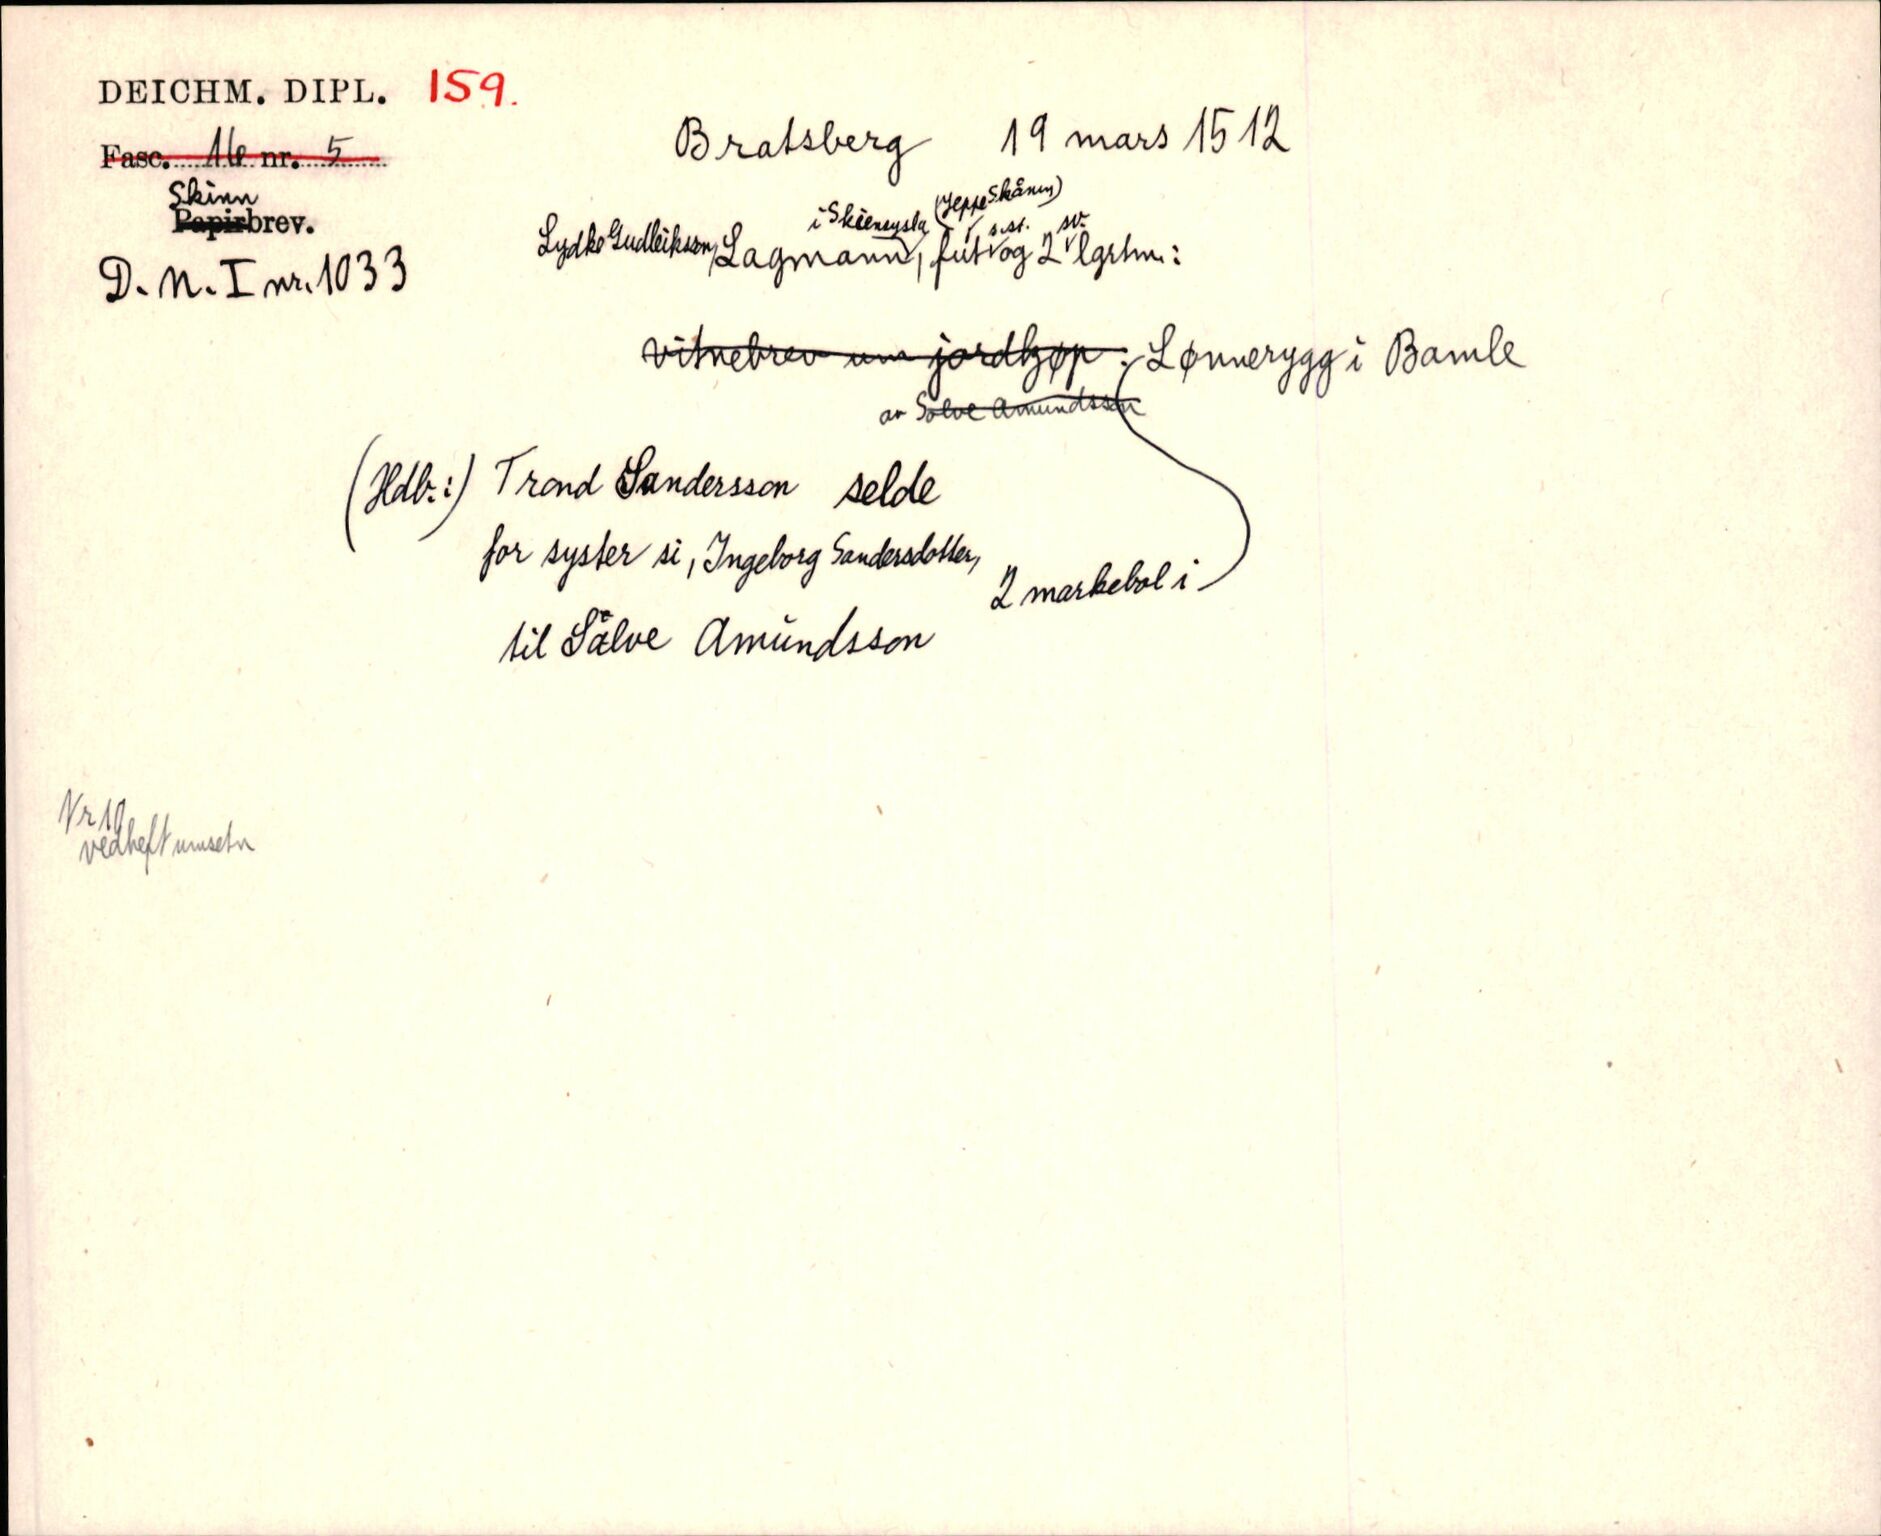 DEICHM. DIPL. 159.
Fasc. 16 nr. 5
Skinn
Papirbrev.
D. N. I nr. 1033
Bratsberg 19 mars 1512
i Skiensysla (Jeppe Skåning)
s.st. sv.
Lydke Gudleiksson, Lagmann, fut og 2 lgrtm.:
vitnebrev um jordkjøp : Lønnerygg i Bamle
av Solve Amundsson
(Hdl.:) Trond Sandersson selde
for syster si, Ingeborg Sandersdotter,
2 markebol i
til Sålve Amundsson
Nr 10
vedheft umsetn